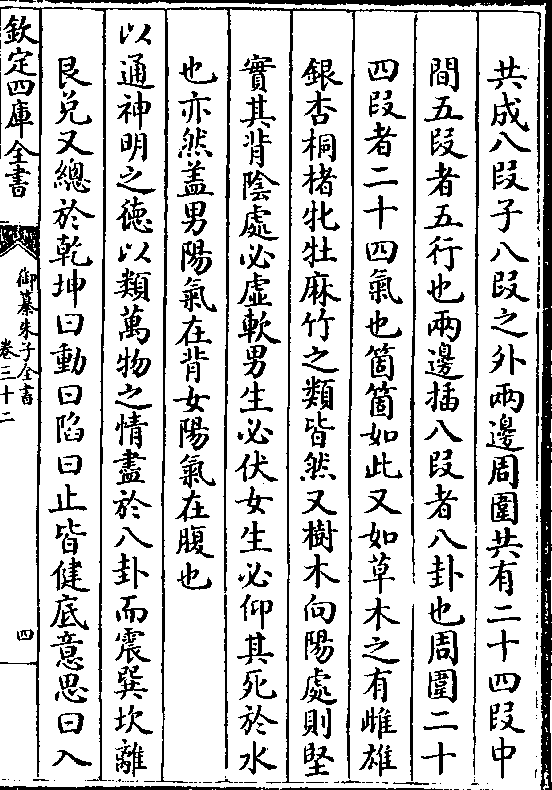 共成八段子八段之外兩邊周圍共有二十四段中
間五段者五行也兩邊插八段者八卦也周圍二十
四段者二十四氣也箇箇如此又如草木之有雌雄
銀杏桐楮牝牡麻竹之類皆然又樹木向陽處則堅
實其背陰處必虛軟男生必伏女生必仰其死於水
也亦然盖男陽氣在背女陽氣在腹也
以通神明之德以類萬物之情盡於八卦而震巽坎離
艮兌又總於乾坤曰動曰陷曰止皆健底意思曰入
欽定四庫全書
御纂朱子全書
卷三十二
四